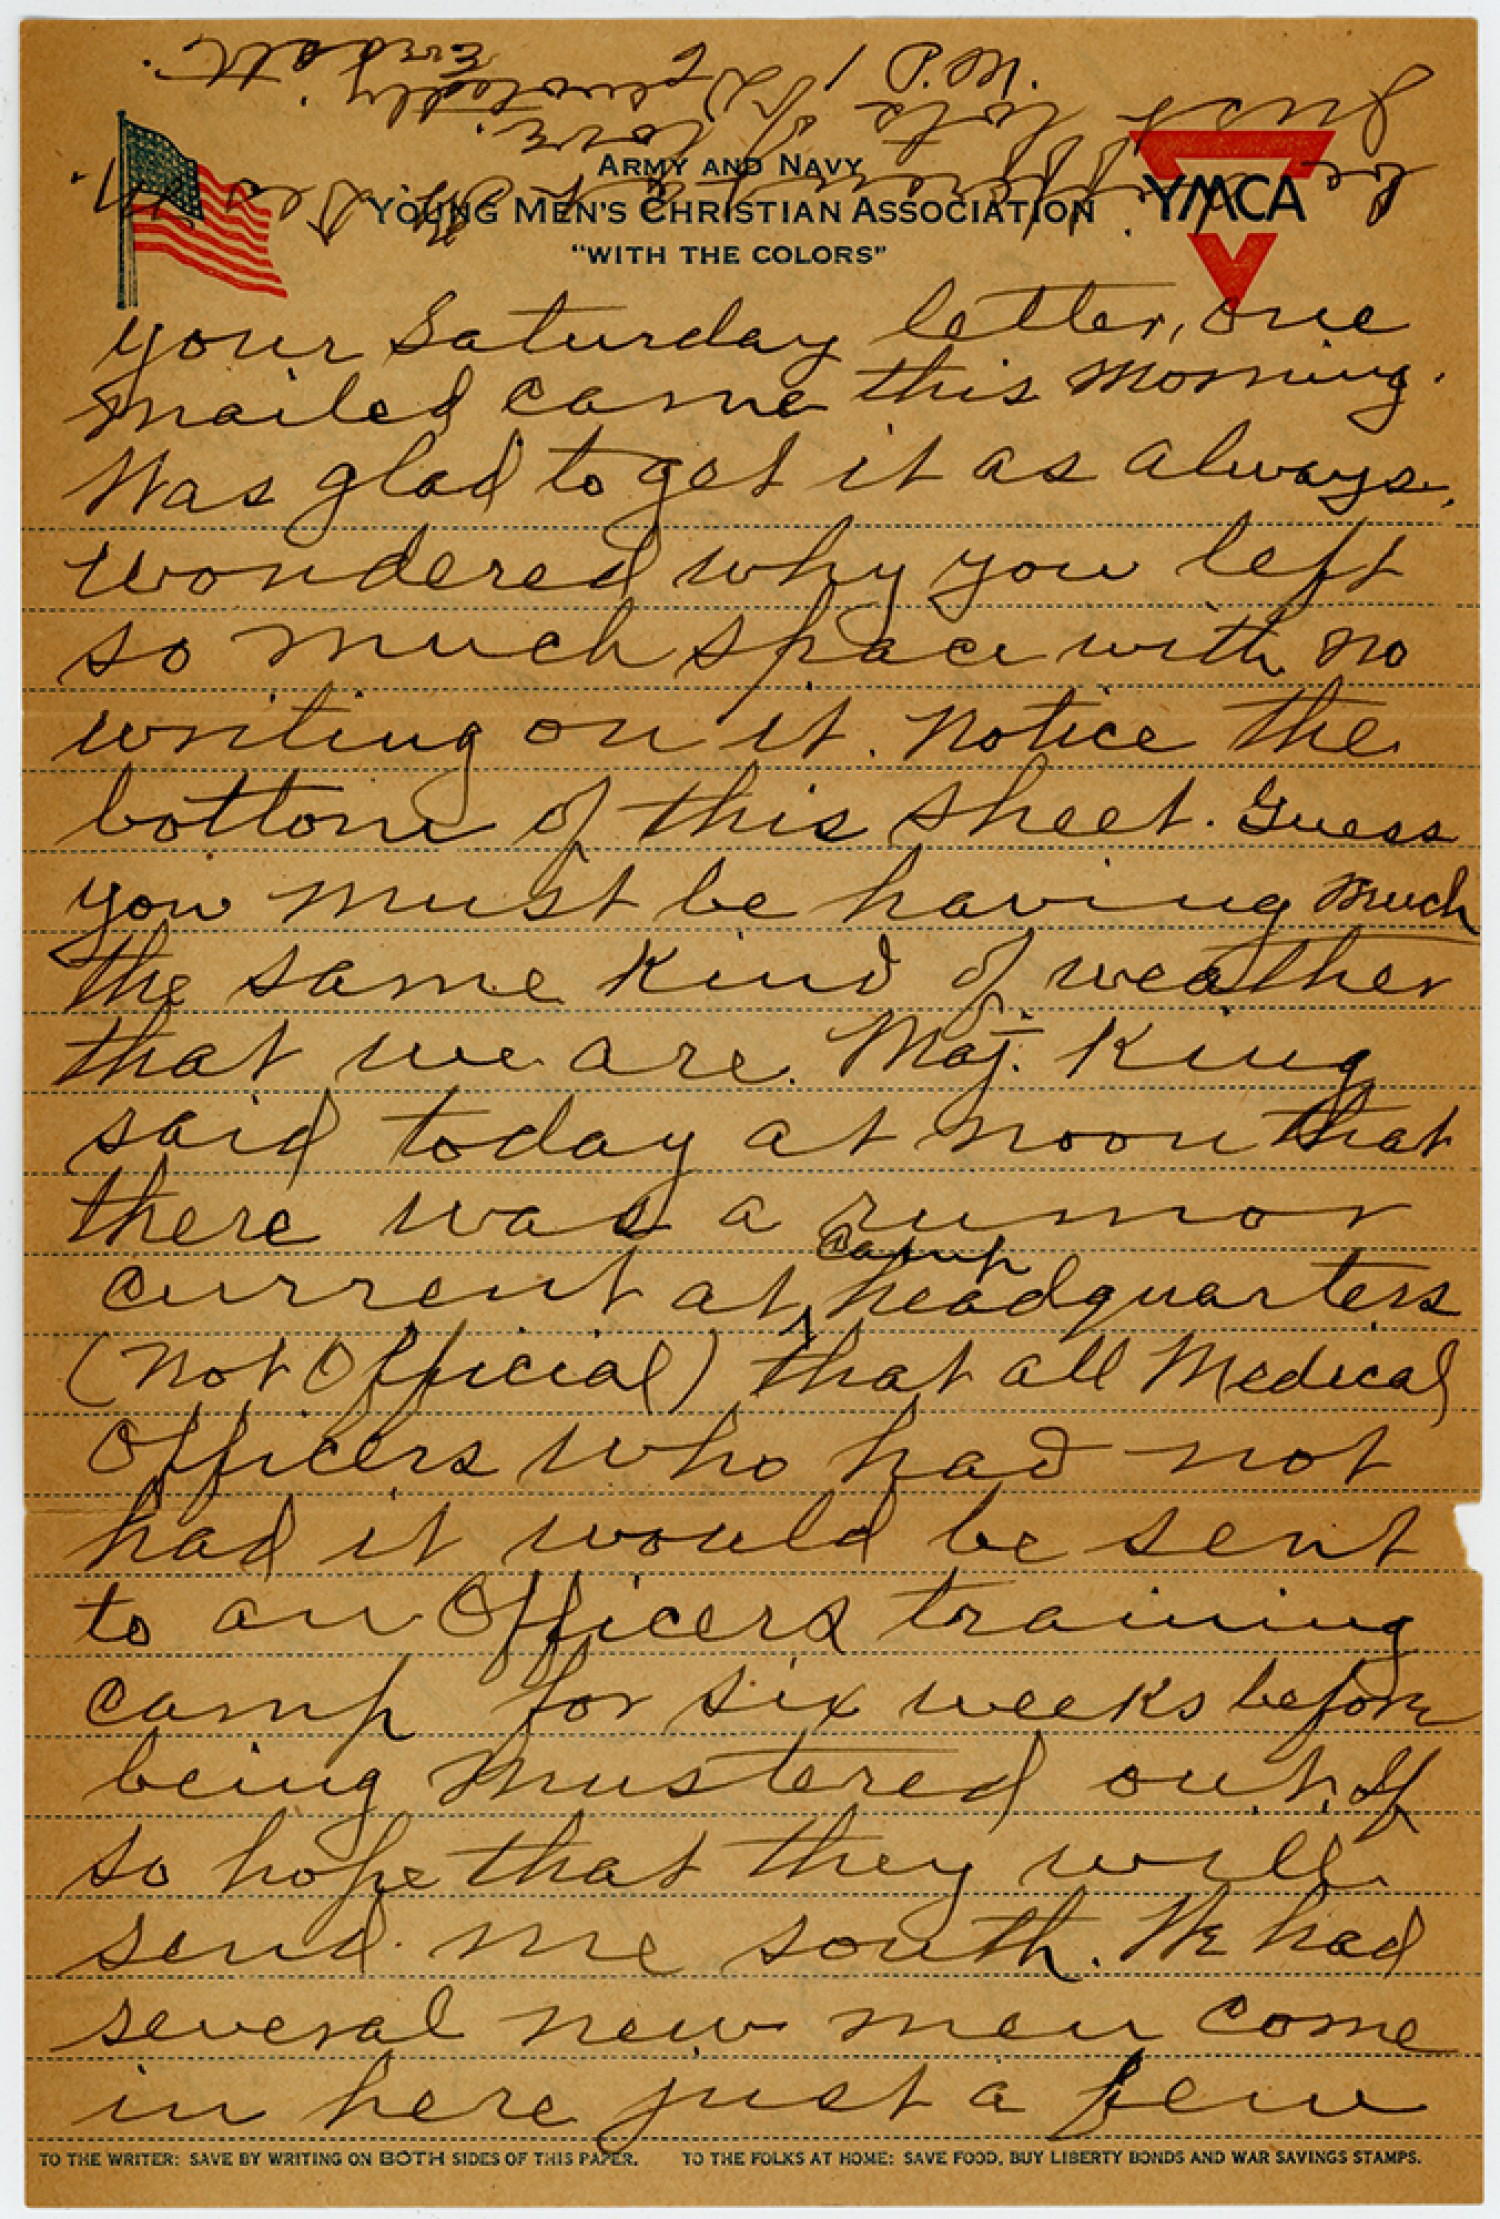 ARMY AND NAVY
YOUNG MEN'S CHRISTIAN ASSOCIATION
"WITH THE COLORS"
YMCA
your Saturday letter, one
mailed came this morning.
Was glad to get it as always.
wondered why you left
so much space with no
writing on it. Notice the
bottom of this sheet. Guess
you must be having much
the same kind of weather
that we are. Maj. King
said today at noon that
there was a rumor
camp
current at headquarters
(not Official) that all Medical
Officers who had not
had it would be sent
to an Officers training
camp for six weeks before
being mustered out. If
so hope that they will
send me south. We had
several new men come
in here just a few
TO THE WRITER: SAVE BY WRITING ON BOTH SIDES OF THIS PAPER. TO THE FOLKS AT HOME: SAVE FOOD, BUY LIBERTY BONDS AND WAR SAVINGS STAMPS.
Just lots of love.
Devotedly